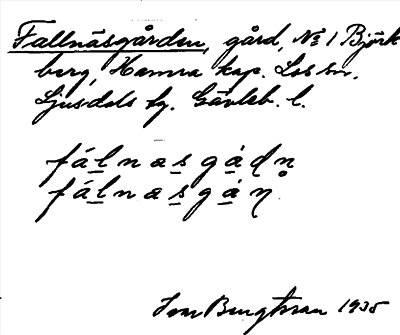 Fallnäsgården, gård, No 1 Björk
berg, Hamra kap. Los sn.
Ljusdals tg. Gävleb. l.
fálnasgádn̥
fálnasgáṇ
Ivar Bengtsson 1935